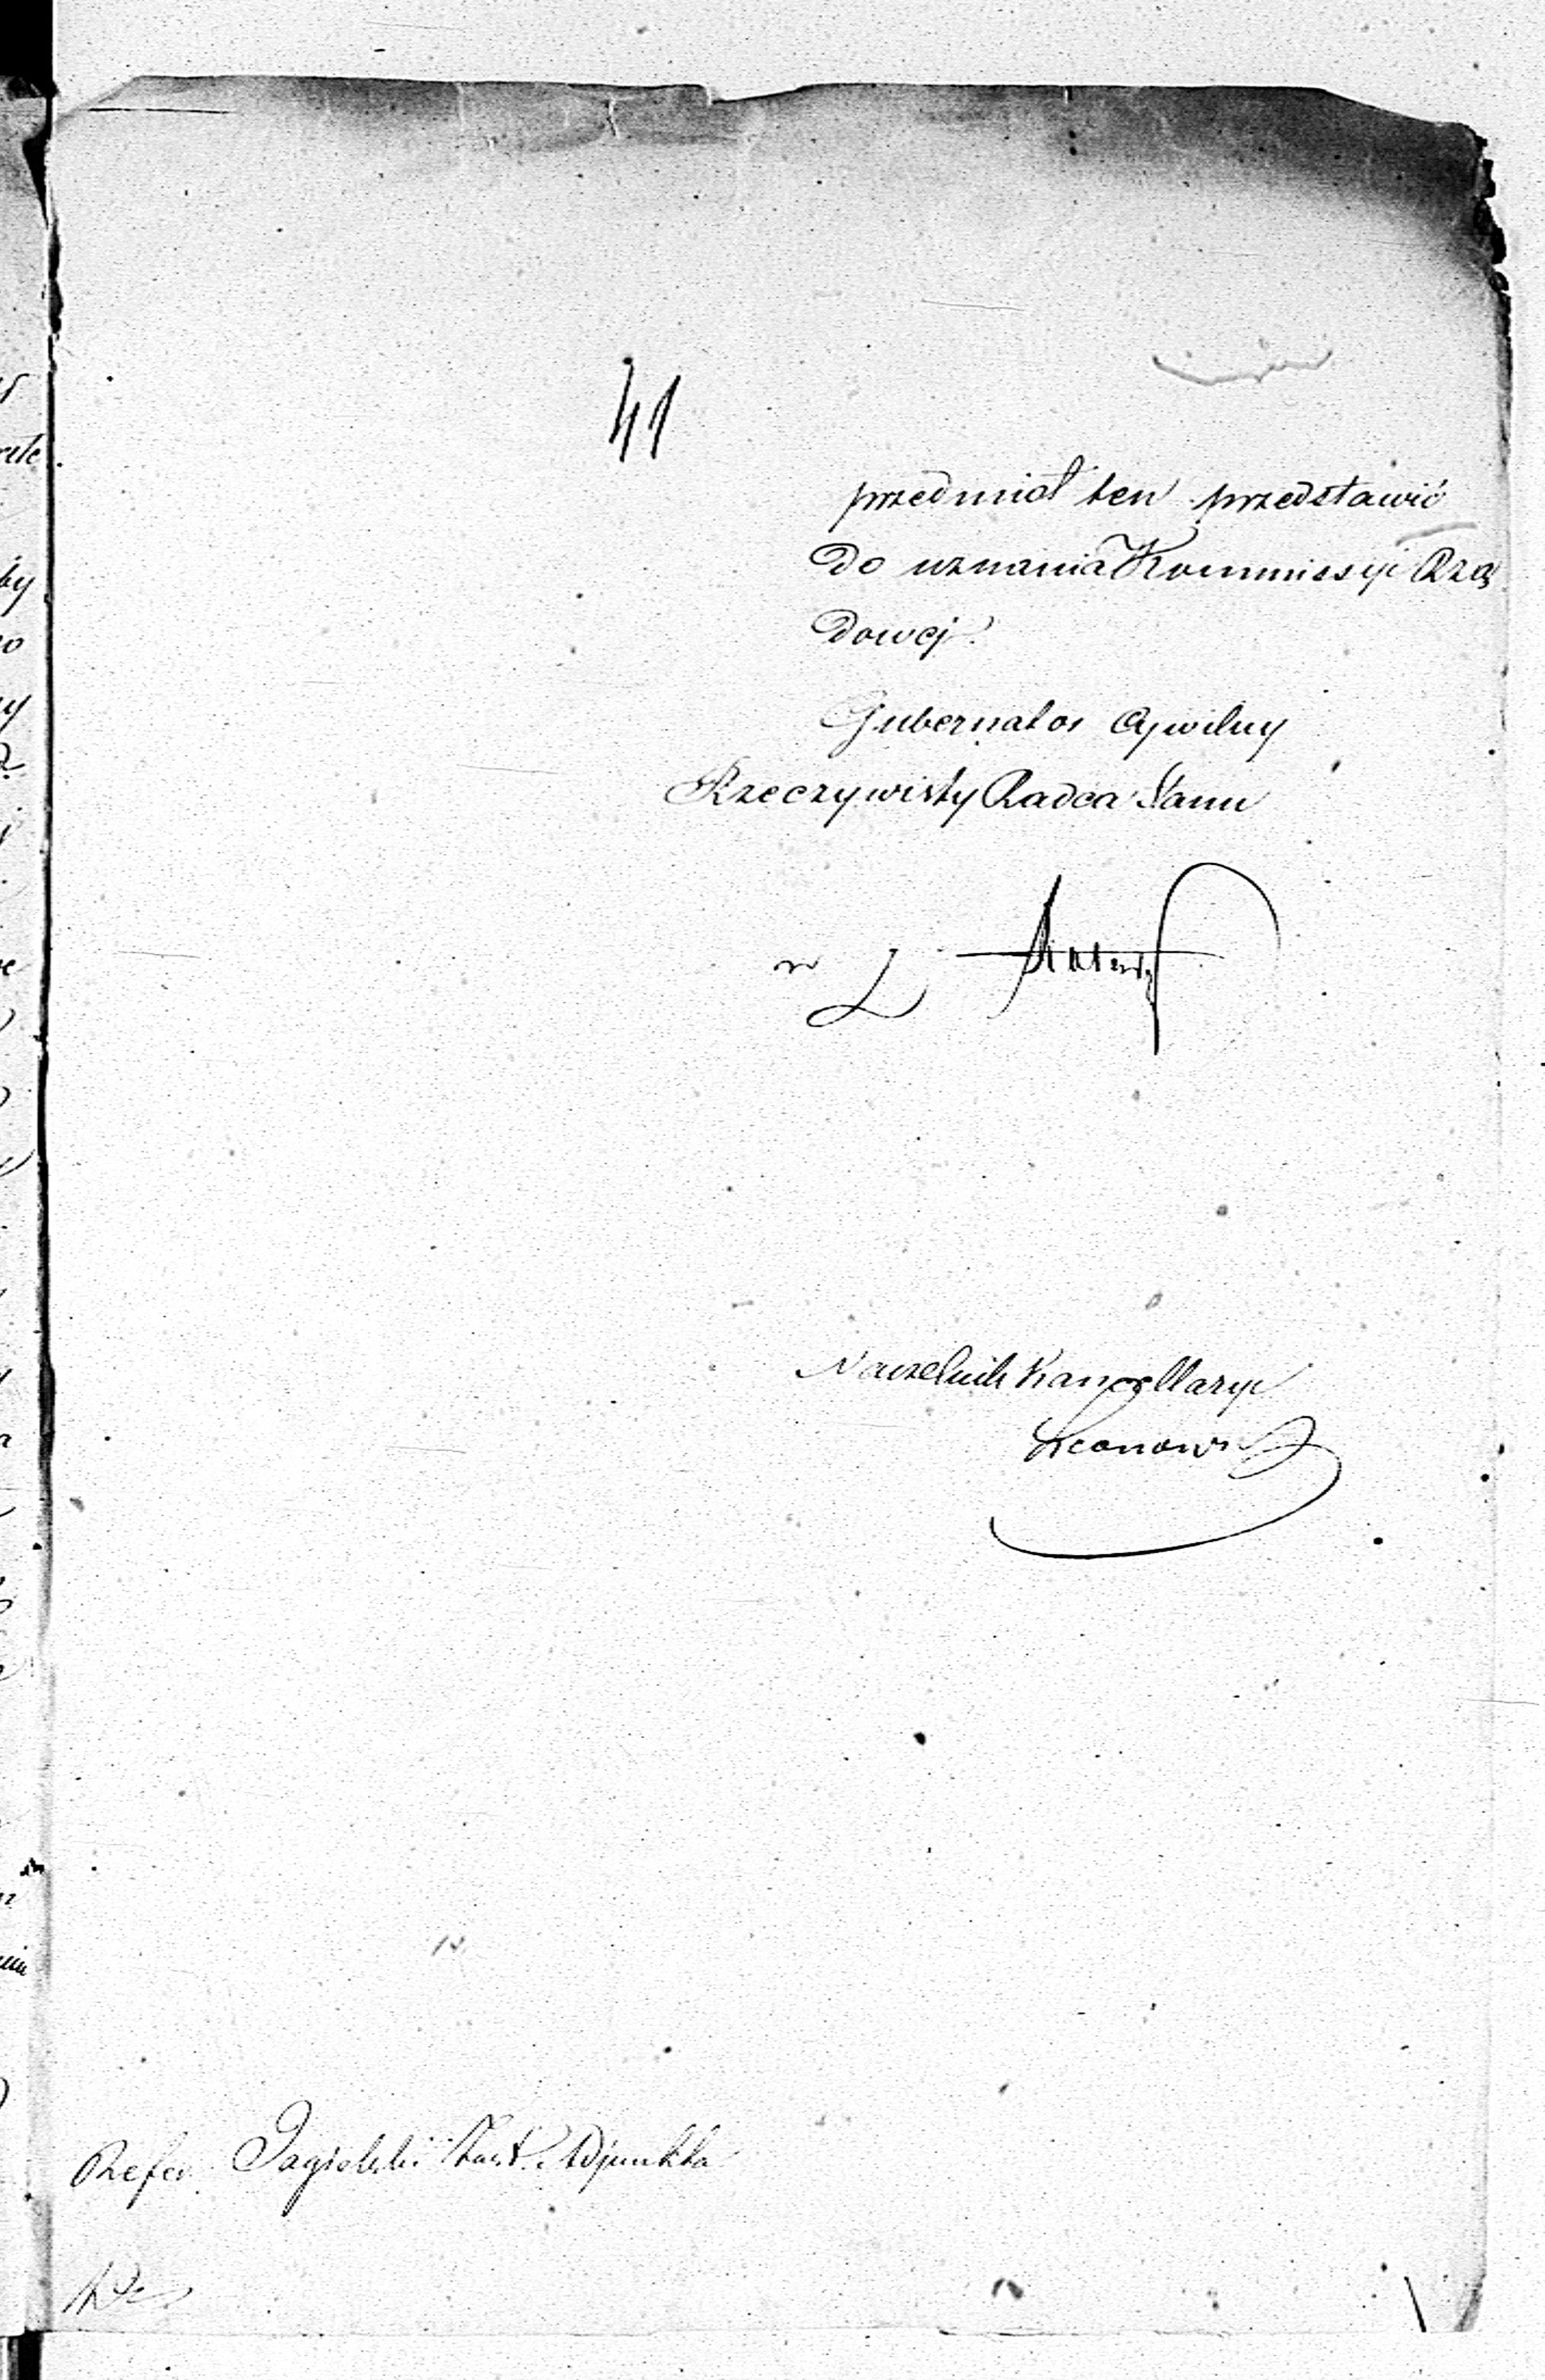 41
przedmiot ten przedstawić
do uznania Kommissyi Rzą
dowej.
Gubernator Cywilny
Rzeczywisty Radca Stanu
w Z
Naczelnik Kancellaryi
Refer. Jagielski Zast. Adjunkta